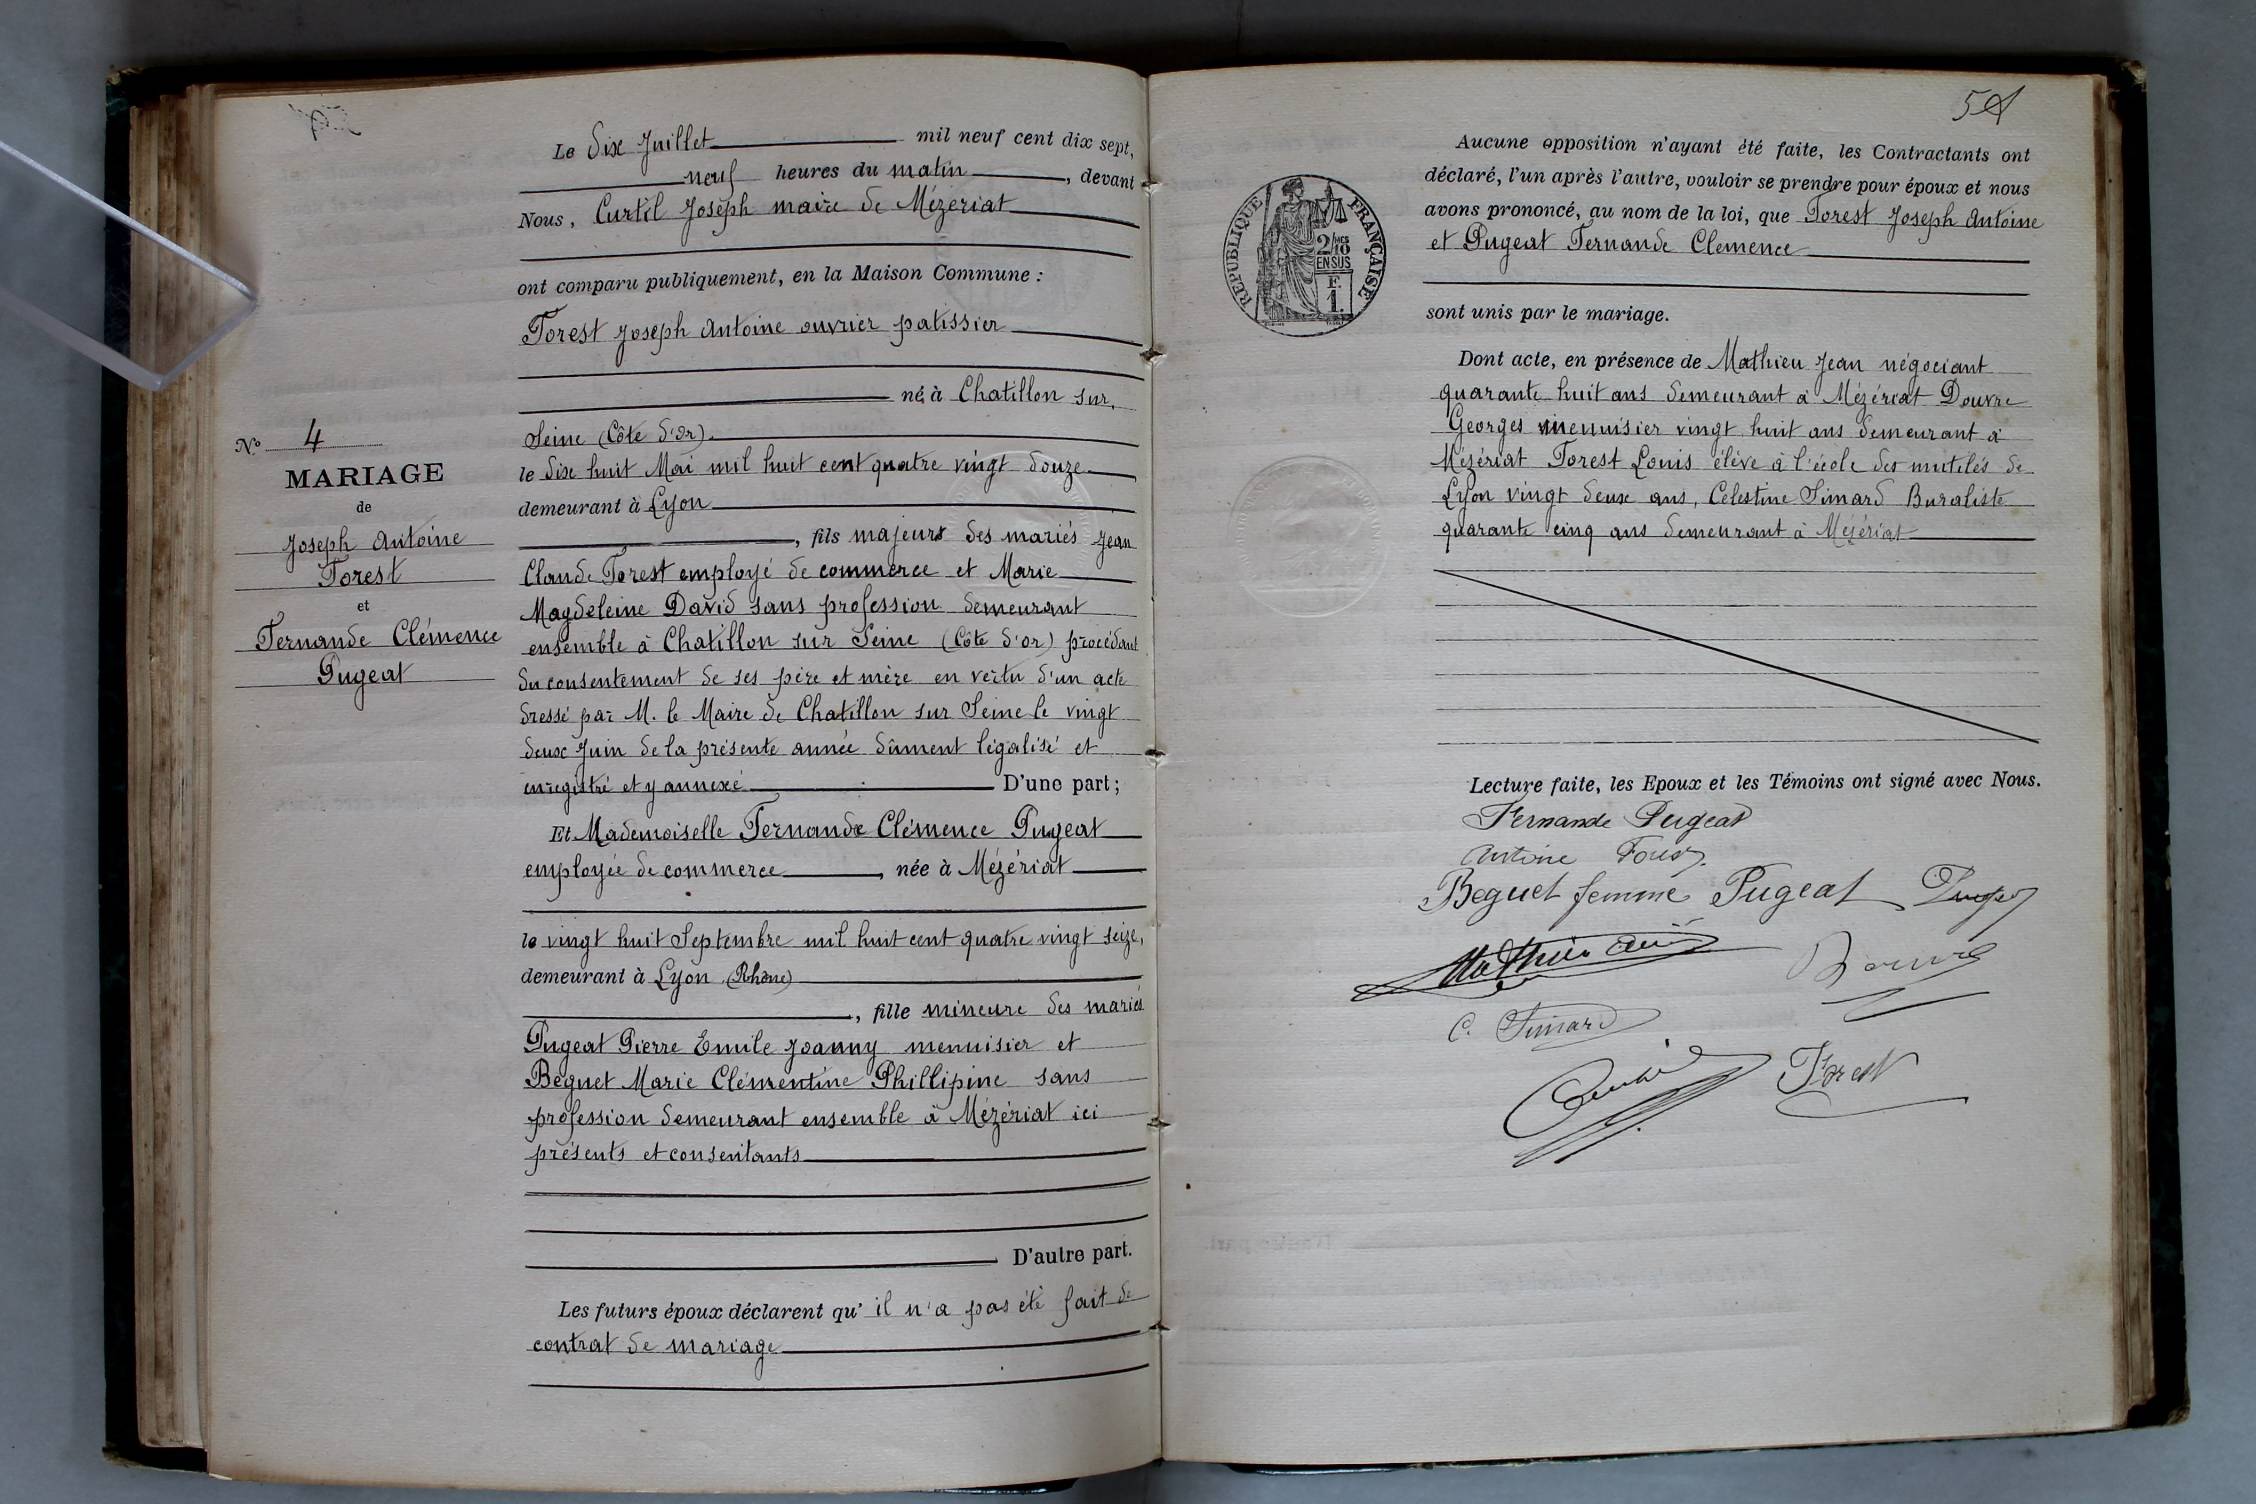 Le dix Juillet mil neuf cent dix sept,
neuf heures du matin, devant
Nous, Curtil Joseph maire de Mézériat
ont comparu publiquement, en la Maison Commune :
Forest Joseph Antoine ouvrier patissier
né à Chatillon sur
Seine (Côte d'Or).
le dix huit Mai mil huit cent quatre vingt douze
demeurant à Lyon
, fils majeur des mariés Jean
Claude Forest employé de commerce et Marie
Magdeleine David sans profession demeurant
ensemble à Chatillon sur Seine (Côte d'or) procédant
du consentement de ses père et mère en vertu d'un acte
dressé par M. le Maire de Chatillon sur Seine le vingt
deux Juin de la présente année dûment légalisé et
enregistré et y annexé D'une part ;
Et Mademoiselle Fernande Clémence Pugeat
employée de commerce, née à Mézériat
le vingt huit Septembre mil huit cent quatre vingt seize,
demeurant à Lyon (Rhône)
, fille mineure des mariés
Pugeat Pierre Emile Joanny menuisier et
Beguet Marie Clémentine Phillipine sans
profession demeurant ensemble à Mézériat ici
présents et consentants
D'autre part.
Les futurs époux déclarent qu'il n'a pas été fait de
contrat de mariage
N° 4
MARIAGE
de
Joseph Antoine
Forest
et
Fernande Clémence
Pugeat
RÉPUBLIQUE FRANÇAISE
2/10 MES
EN SUS
F.
1.
Aucune opposition n'ayant été faite, les Contractants ont
déclaré, l'un après l'autre, vouloir se prendre pour époux et nous
avons prononcé, au nom de la loi, que Forest Joseph Antoine
et Pugeat Fernande Clemence
sont unis par le mariage.
Dont acte, en présence de Mathieu Jean négociant
quarante huit ans demeurant à Mézériat Douvre
Georges menuisier vingt huit ans demeurant à
Mézériat Forest Louis élève à l'école des mutilés de
Lyon vingt deux ans, Célestine Simard Buraliste
quarante cinq ans demeurant à Mézériat
Lecture faite, les Epoux et les Témoins ont signé avec Nous.
Fernande Pugeat
Antoine Forest
Beguet femme Pugeat
Mathieu
C. Simard
Forest